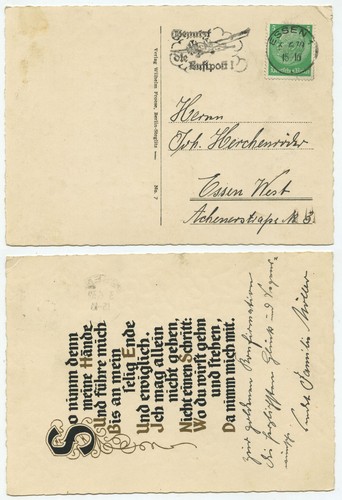 Benutzt
die
Luftpost!
ESSEN
Verlag Wilhelm Fromm, Berlin-Steglitz
No. 7
Herrn
Joh. Herchenröder
Essen West
So nimm denn
meine Hände
Und führe mich
Bis an mein
selig Ende
Und ewiglich.
Ich mag allein
nicht gehen,
Nicht einen Schritt:
Wo du wirst gehn
und stehen,
Da nimm mich mit.
Zur goldenen Konfirmation
die herzlichsten Glück- u. Segens-
Familie Möller